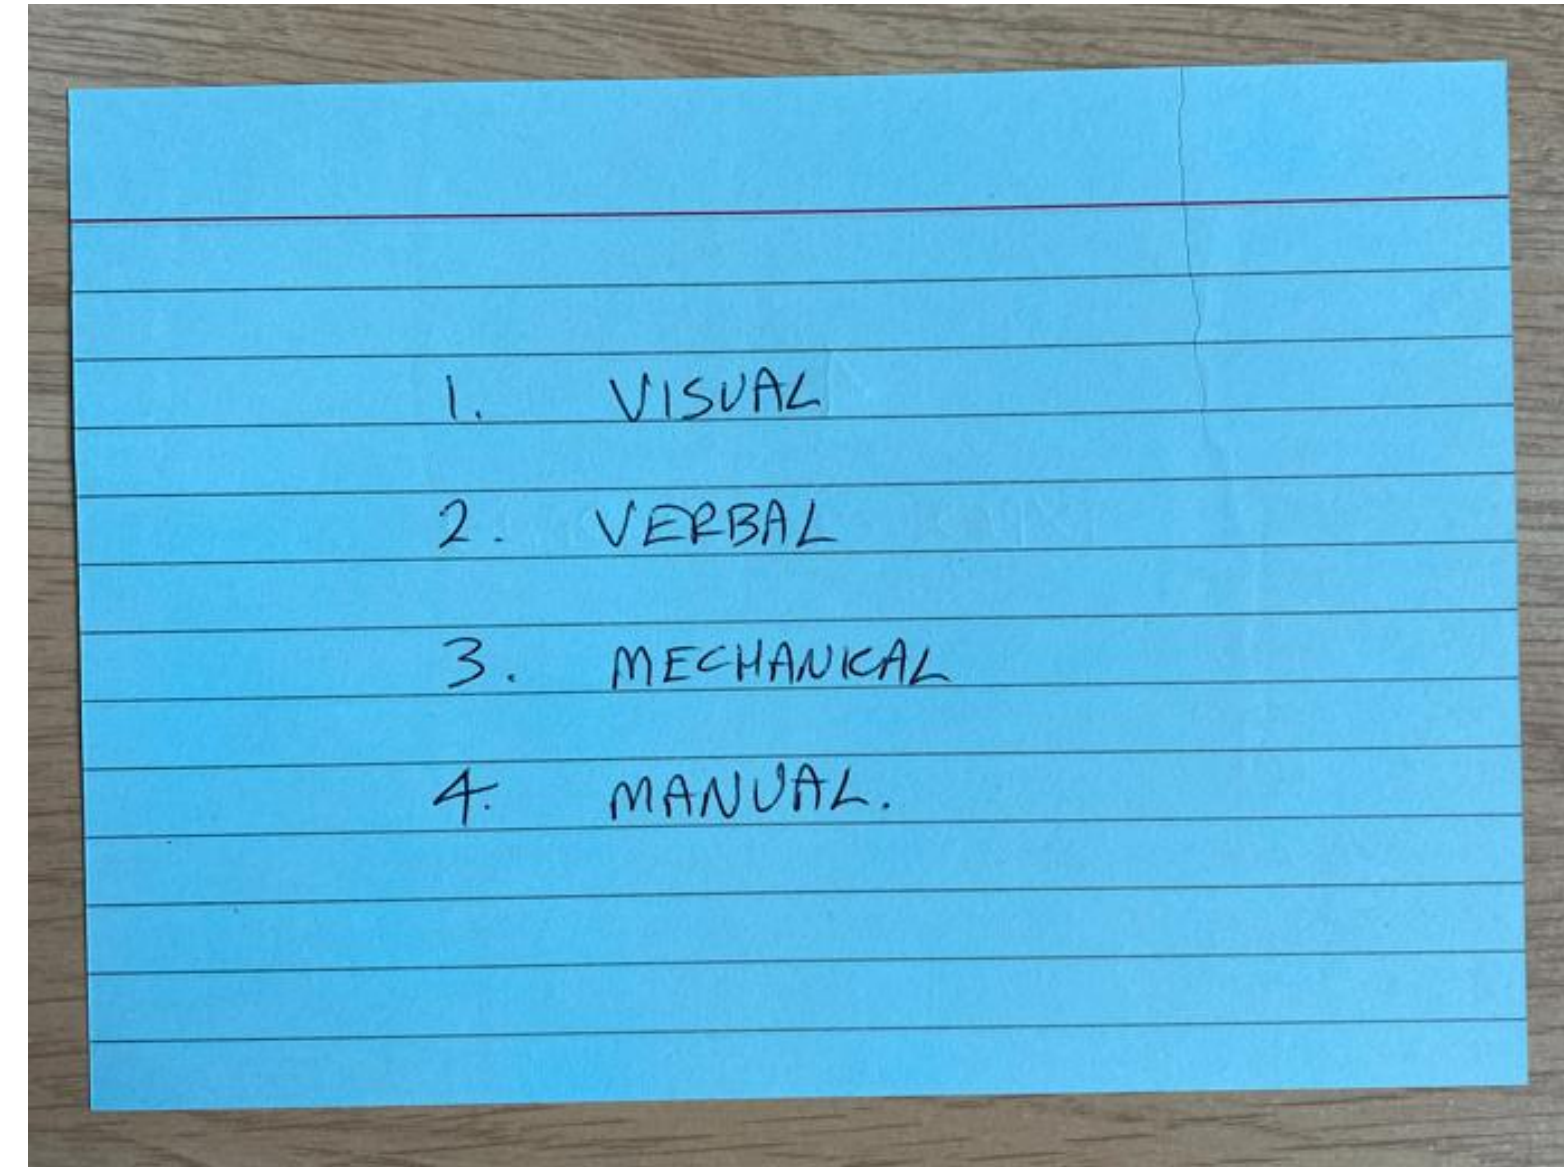 1. VISUAL
2. VERBAL
3. MECHANICAL
4. MANUAL.